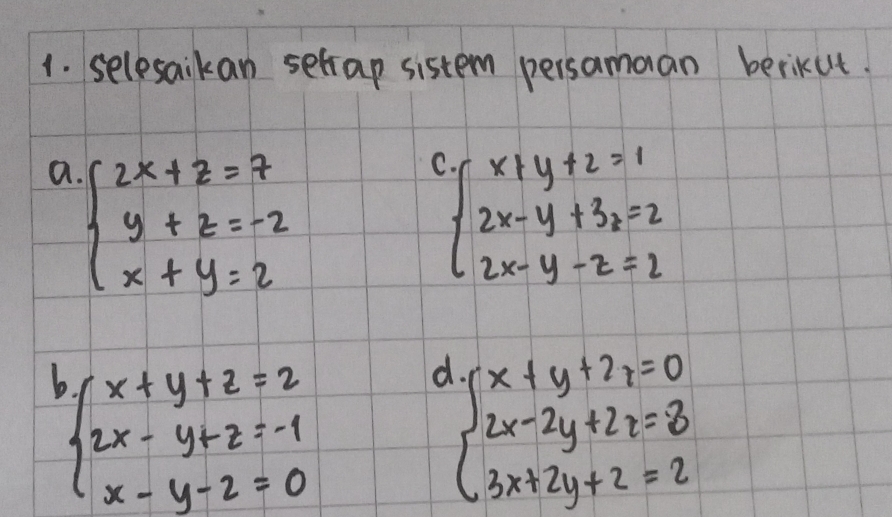 1. Selesaikan setiap sistem persamaan berikut.
a. 2x + z = 7
y + z = -2
x + y = 2
c. x + y + z = 1
2x - y + 3z = 2
2x - y - z = 2
b. x + y + z = 2
2x - y + z = -1
x - y - z = 0
d. x + y + 2z = 0
2x - 2y + 2z = 8
3x + 2y + z = 2